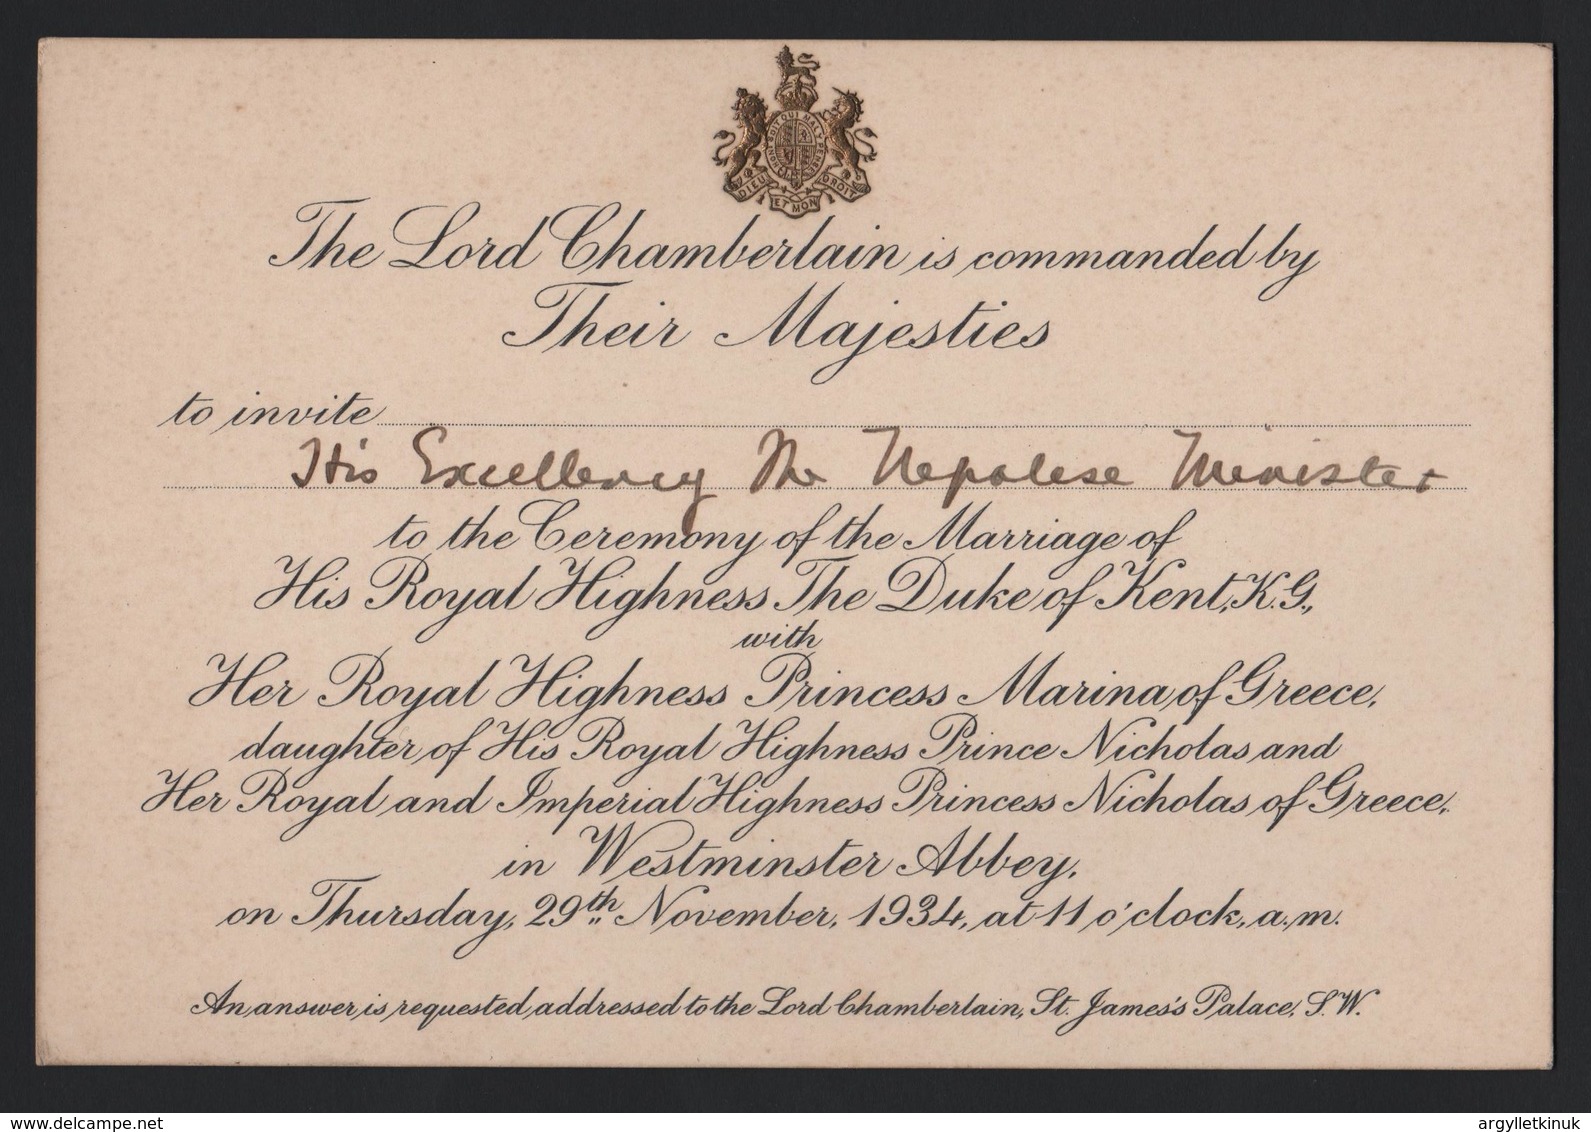 HONI SOIT QUI MAL Y PENSE
DIEU ET MON DROIT
The Lord Chamberlain is commanded by
Their Majesties
to invite
His Excellency The Nepalese Minister
to the Ceremony of the Marriage of
His Royal Highness The Duke of Kent, K.G.,
with
Her Royal Highness Princess Marina of Greece,
daughter of His Royal Highness Prince Nicholas and
Her Royal and Imperial Highness Princess Nicholas of Greece,
in Westminster Abbey,
on Thursday, 29th November, 1934, at 11 o'clock, a.m.
An answer is requested addressed to the Lord Chamberlain, St. James's Palace, S.W.
delcampe.net
argylletkinuk